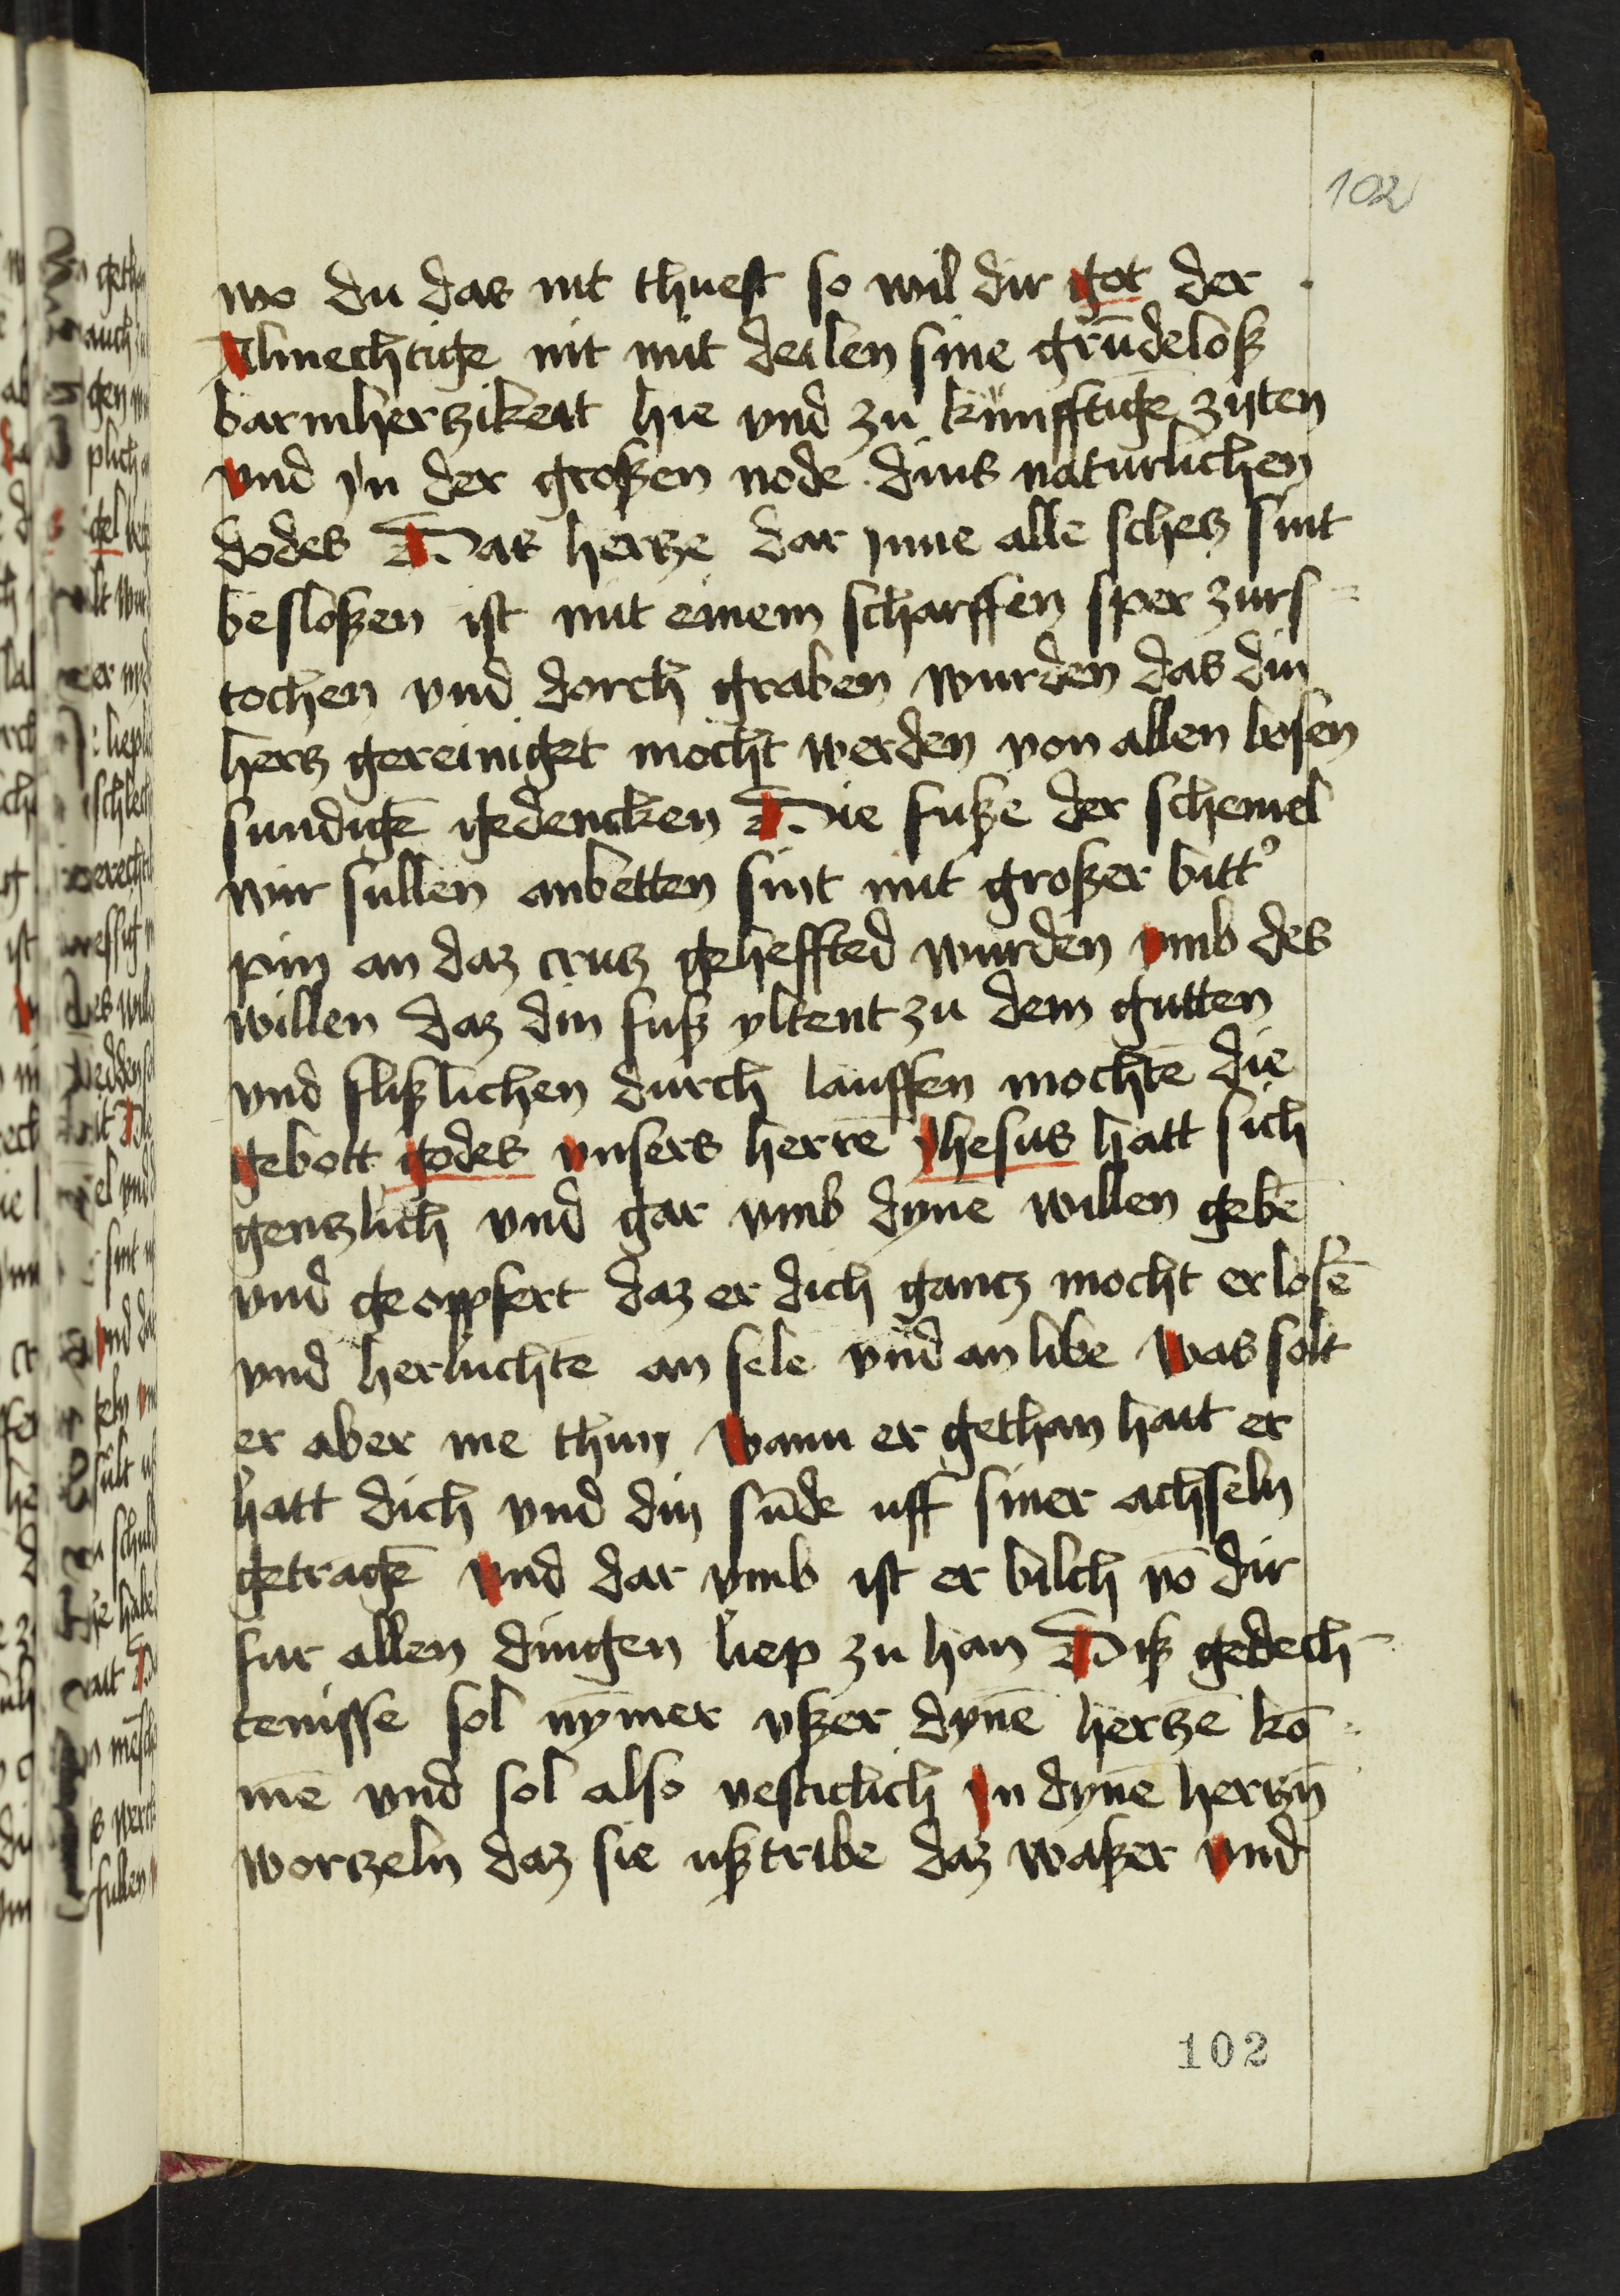 102
wo du das nit thuest so wil dir got der
Almechtige nit mit deilen sine grūdeloß
barmherczikeit hie vnd zu kunfftigē zijten
vnd jn der großen node dins naturlichen
dodes Das hercze dar jnne alle schecz sint
besloßen ist mit einem scharffen sper zurs=
tochen vnd dorch graben wurden das din
hercz gereiniget mocht werden von allen bosen
sundigē gedencken Die fuße der schemel
wir sullen anbetten sint mit großer bitt᾽
pin an daz crucz geheffted wurden vmb des
willen daz din fuß yltent zu dem gutten
vnd flißlichen durch lauffen mochtē die
gebott godes vnsers herrē Jhesus hatt sich
genczlich vnd gar vmb dynē willen gebē
vnd geoppfert daz er dich gancz mocht erlosē
vnd herluchtē an sele vnd an libe Was solt
er aber me thun Wann er gethan hait er
hatt dich vnd din sūde uff siner achseln
getragē Vnd dar vmb ist er bilch vō dir
fur allen dingen liep zu han Diß gedech-
tenisse sol nȳmer vßer dynē herczē kō=
mē vnd sol also vesticlich jn dynē herczn̄
worczeln daz sie ußtribe daz waßer vnd
102